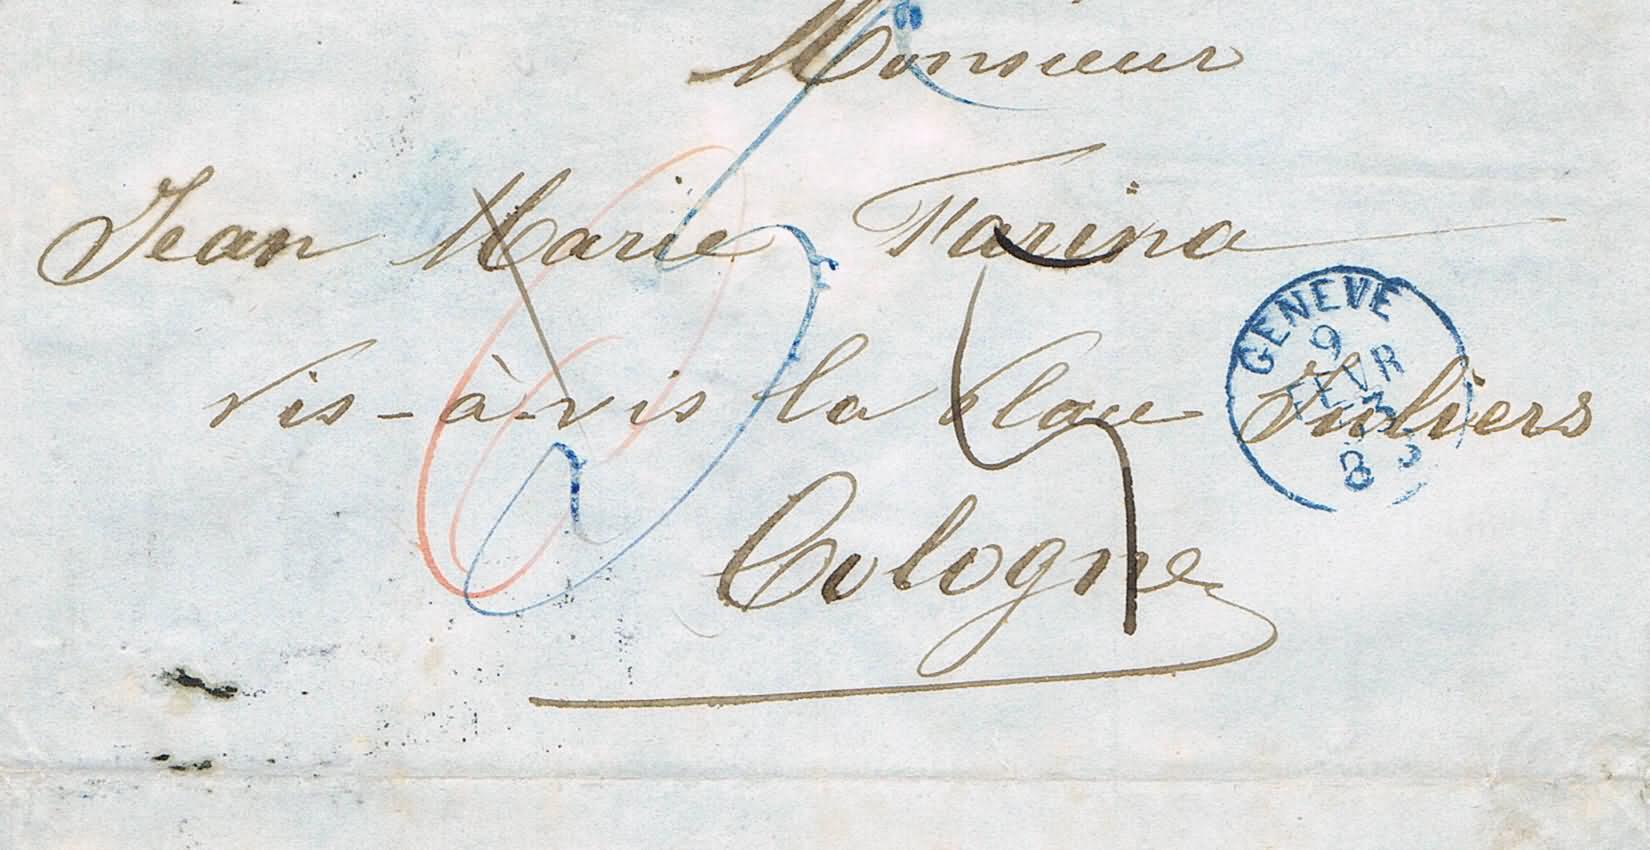 Monsieur
Jean Marie Farina
vis-à-vis la Place Juliers
Cologne
GENEVE
9
FEVR